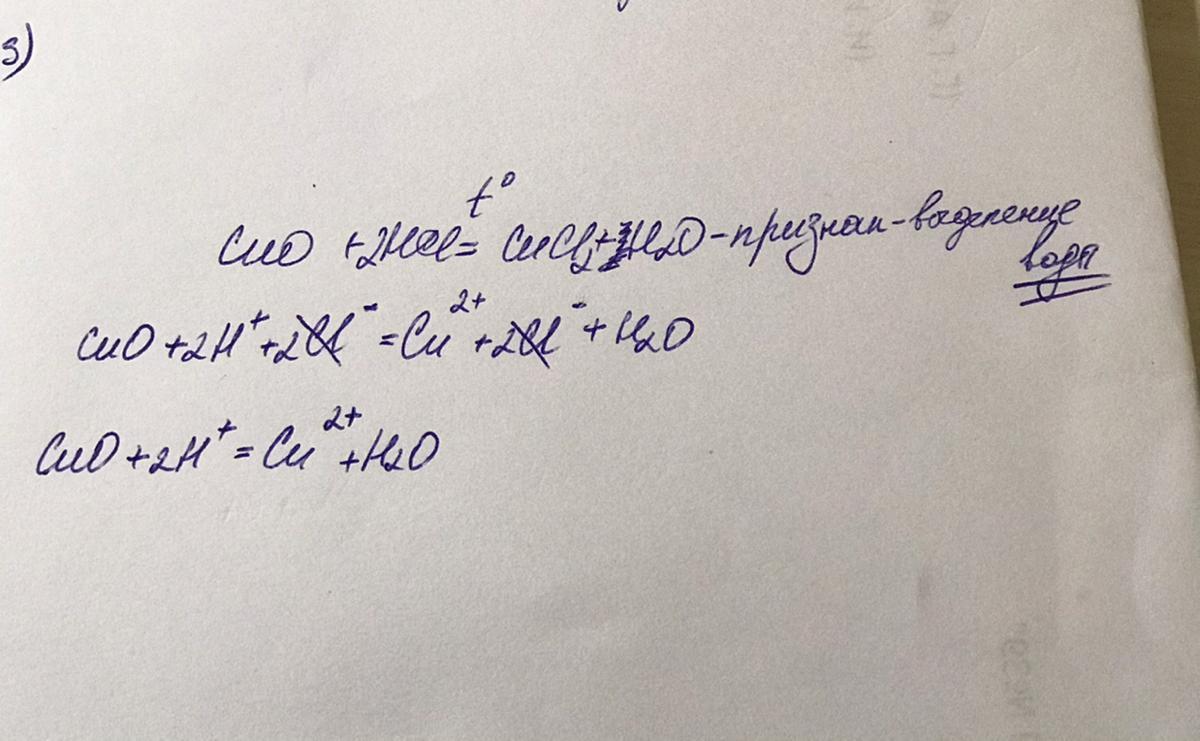 3)
t°
CuO + 2HCl = CuCl₂ + H₂O - признак - выделение
воды
CuO + 2H⁺ + 2Cl⁻ = Cu²⁺ + 2Cl⁻ + H₂O
CuO + 2H⁺ = Cu²⁺ + H₂O